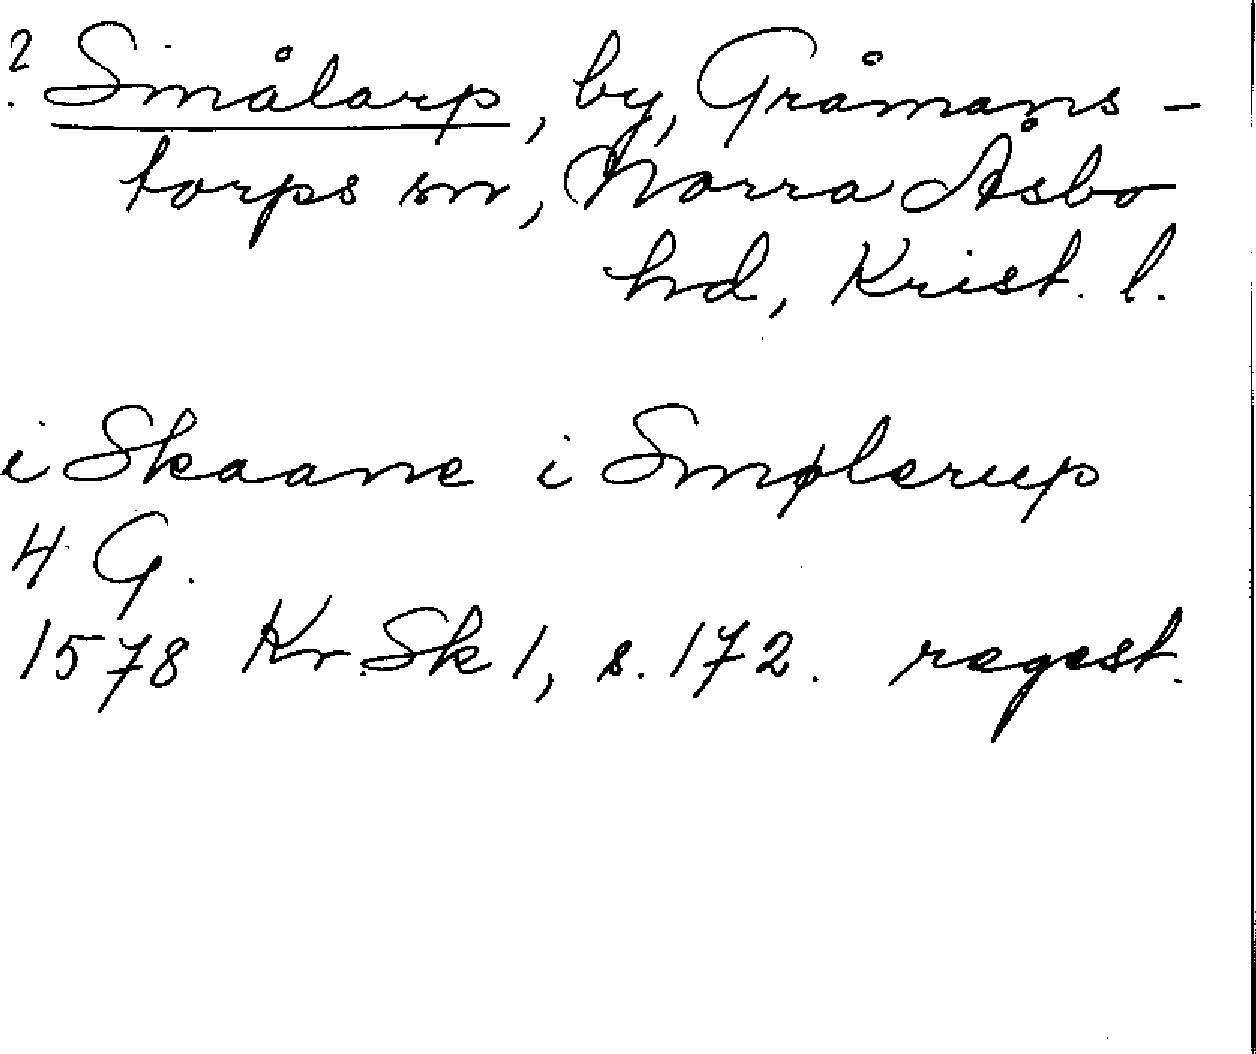 ? Smålarp, by, Gråmans-
torps sn, Norra Åsbo
hd, Krist. l.
i Skaane i Smølerup
4 G.
1578 Kr.Sk 1, s. 172. regest.